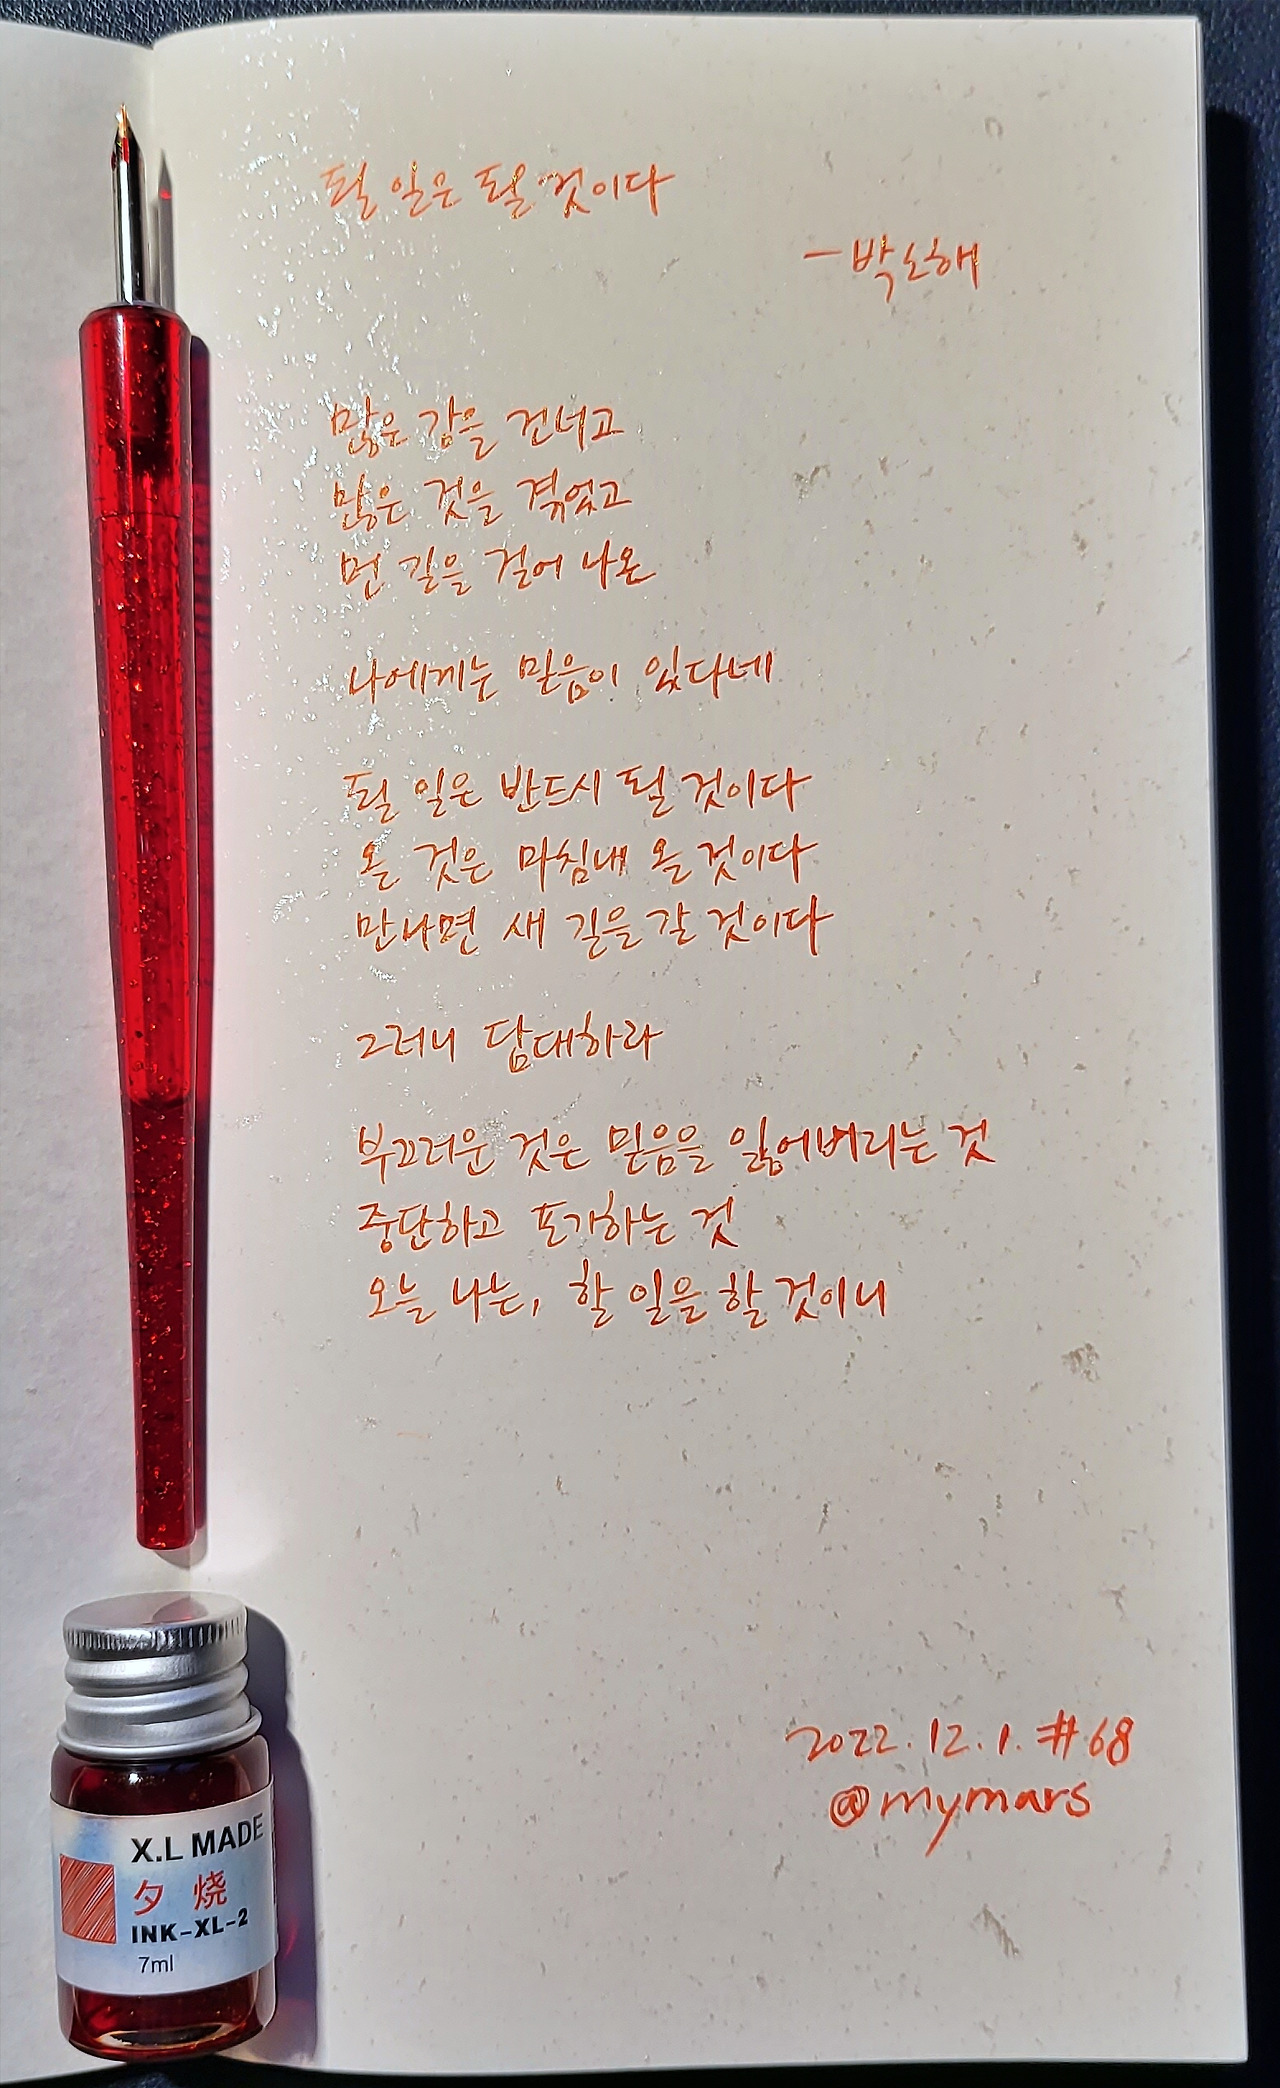 될 일은 될 것이다
- 박노해
많은 강을 건너고
많은 것을 겪었고
먼 길을 걸어 나온
나에게는 믿음이 있다네
될 일은 반드시 될 것이다
올 것은 마침내 올 것이다
만나면 새 길을 갈 것이다
그러니 담대하라
부끄러운 것은 믿음을 잃어버리는 것
중단하고 포기하는 것
오늘 나는, 할 일을 할 것이니
2022.12.1. #68
@mymars
X.L MADE
夕烧
INK-XL-2
7ml